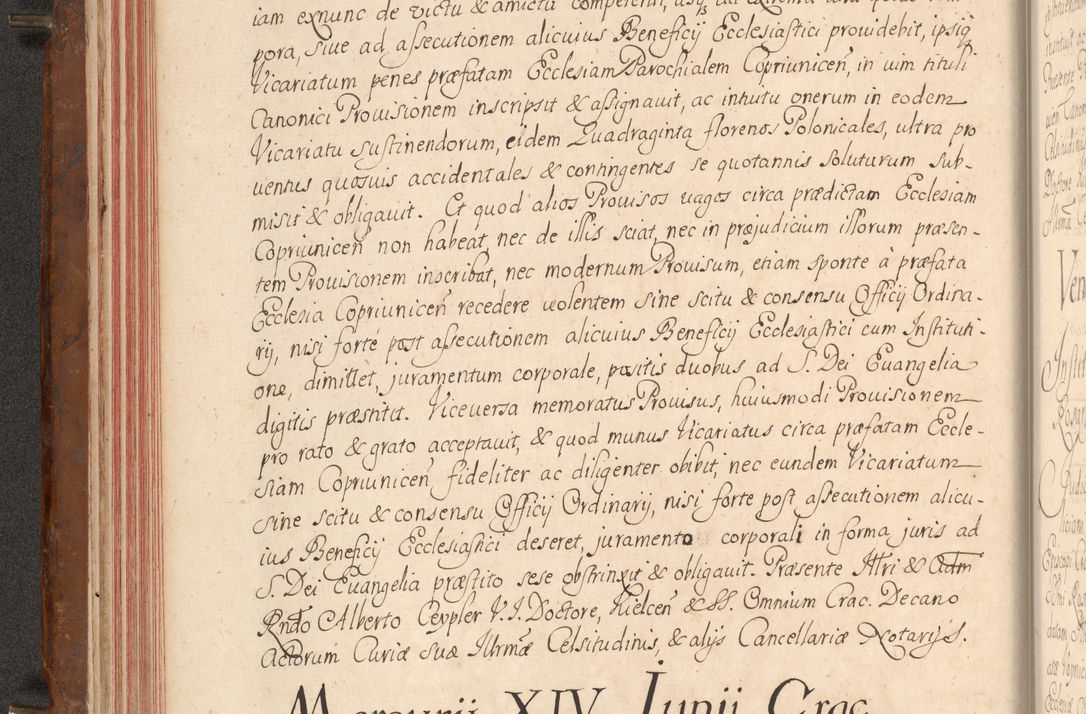 iam exnunc de victu & amictu
pora, siue ad assecutionem alicuius Beneficij Ecclesiastici prouidebit, ipsiq
Vicariatum penes præfatam Ecclesiam Parochialem Copriunicen̄, in uim tituli
Canonici Prouisionem inscripsit & assignauit, ac intuitu onerum in eodem
Vicariatu sustinendorum, eidem Quadraginta florenos Polonicales, ultra pro
uentus quosuis accidentales & contingentes se quotannis soluturum sub-
misit & obligauit. Et quod alios Prouisos uagos circa prædictam Ecclesiam
Copriunicen̄ non habeat, nec de illis sciat, nec in præjudicium illorum præsen-
tem Prouisionem inscribat, nec modernum Prouisum, etiam sponte à præfata
Ecclesia Copriunicen̄ recedere uolentem sine scitu & consensu Officij Ordina-
rij, nisi forte post assecutionem alicuius Beneficij Ecclesiastici cum Instituti-
one, dimittet, juramentum corporale, positis duobus ad S. Dei Euangelia
digitis præstitit. Viceuersa memoratus Prouisus, huiusmodi Prouisionem
pro rato & grato acceptauit, & quod munus Vicariatus circa præfatam Eccle-
siam Copriunicen̄ fideliter ac diligenter obibit, nec eundem Vicariatum
sine scitu & consensu Officij Ordinarij, nisi forte post assecutionem alicu-
ius Beneficij Ecclesiastici deseret, juramento corporali in forma juris ad
S. Dei Euangelia præstito sese obstrinxit & obligauit. Præsente Illri & Adm
Rndo Alberto Ceypler V. I. Doctore, Kielcen̄ & SS. Omnium Crac. Decano
Actorum Curiæ suæ Illrmæ Celsitudinis, & alijs Cancellariæ Notarijs.
Mercurij XIV Junij Crac